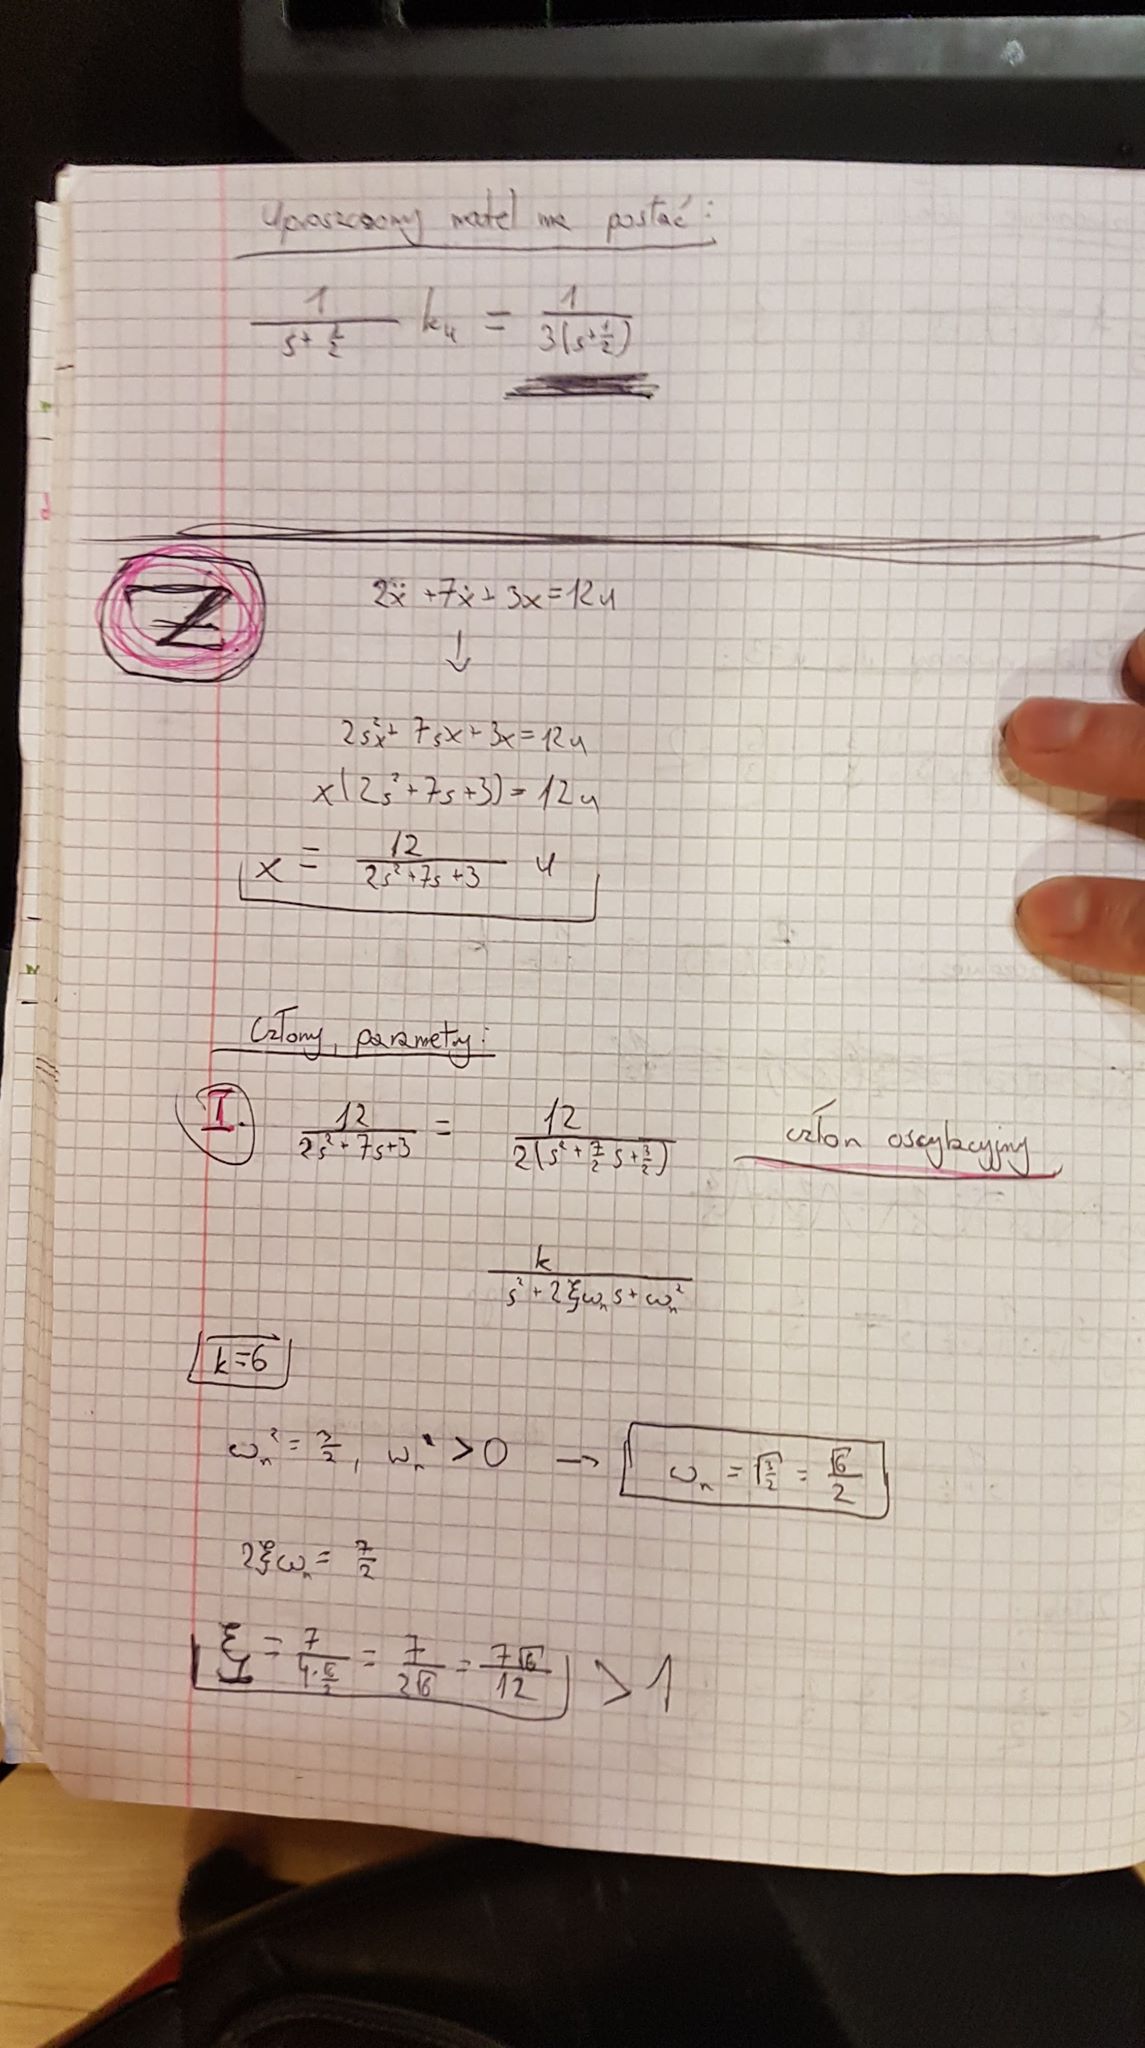 Uproszczony model ma postać:
1/(s+1/2) k₄ = 1/(3(s+1/2))
Z
2ẍ+7ẋ+3x=12u
↓
2s²x+7sx+3x=12u
x(2s²+7s+3)=12u
x = 12/(2s²+7s+3) u
Człony, parametry:
I. 12/(2s²+7s+3) = 12/(2(s²+7/2 s+3/2)) człon oscylacyjny
k/(s²+2ξωₙs+ωₙ²)
k=6
ωₙ²=3/2, ωₙ>0 → ωₙ=√(3/2)=√6/2
2ξωₙ=7/2
ξ=7/(4·√6/2)=7/(2√6)=7√6/12 >1